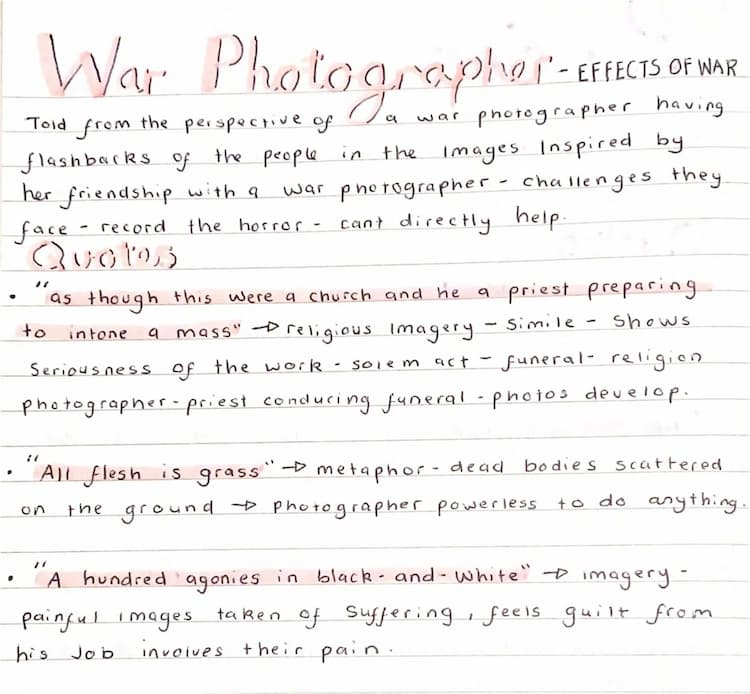 War Photographer - EFFECTS OF WAR
Told from the perspective of a war photographer having
flashbacks of the people in the images Inspired by
her friendship with a war photographer - challenges they
face - record the horror - cant directly help.
Quotes
• "as though this were a church and he a priest preparing
to intone a mass" → religious Imagery - Simile - Shows
Seriousness of the work - solem act - funeral - religion
photographer - priest conduring funeral - photos develop.
• "All flesh is grass" → metaphor - dead bodies scattered
on the ground → photographer powerless to do anything.
• "A hundred agonies in black-and-white" → imagery -
painful images taken of suffering, feels guilt from
his Job involves their pain.